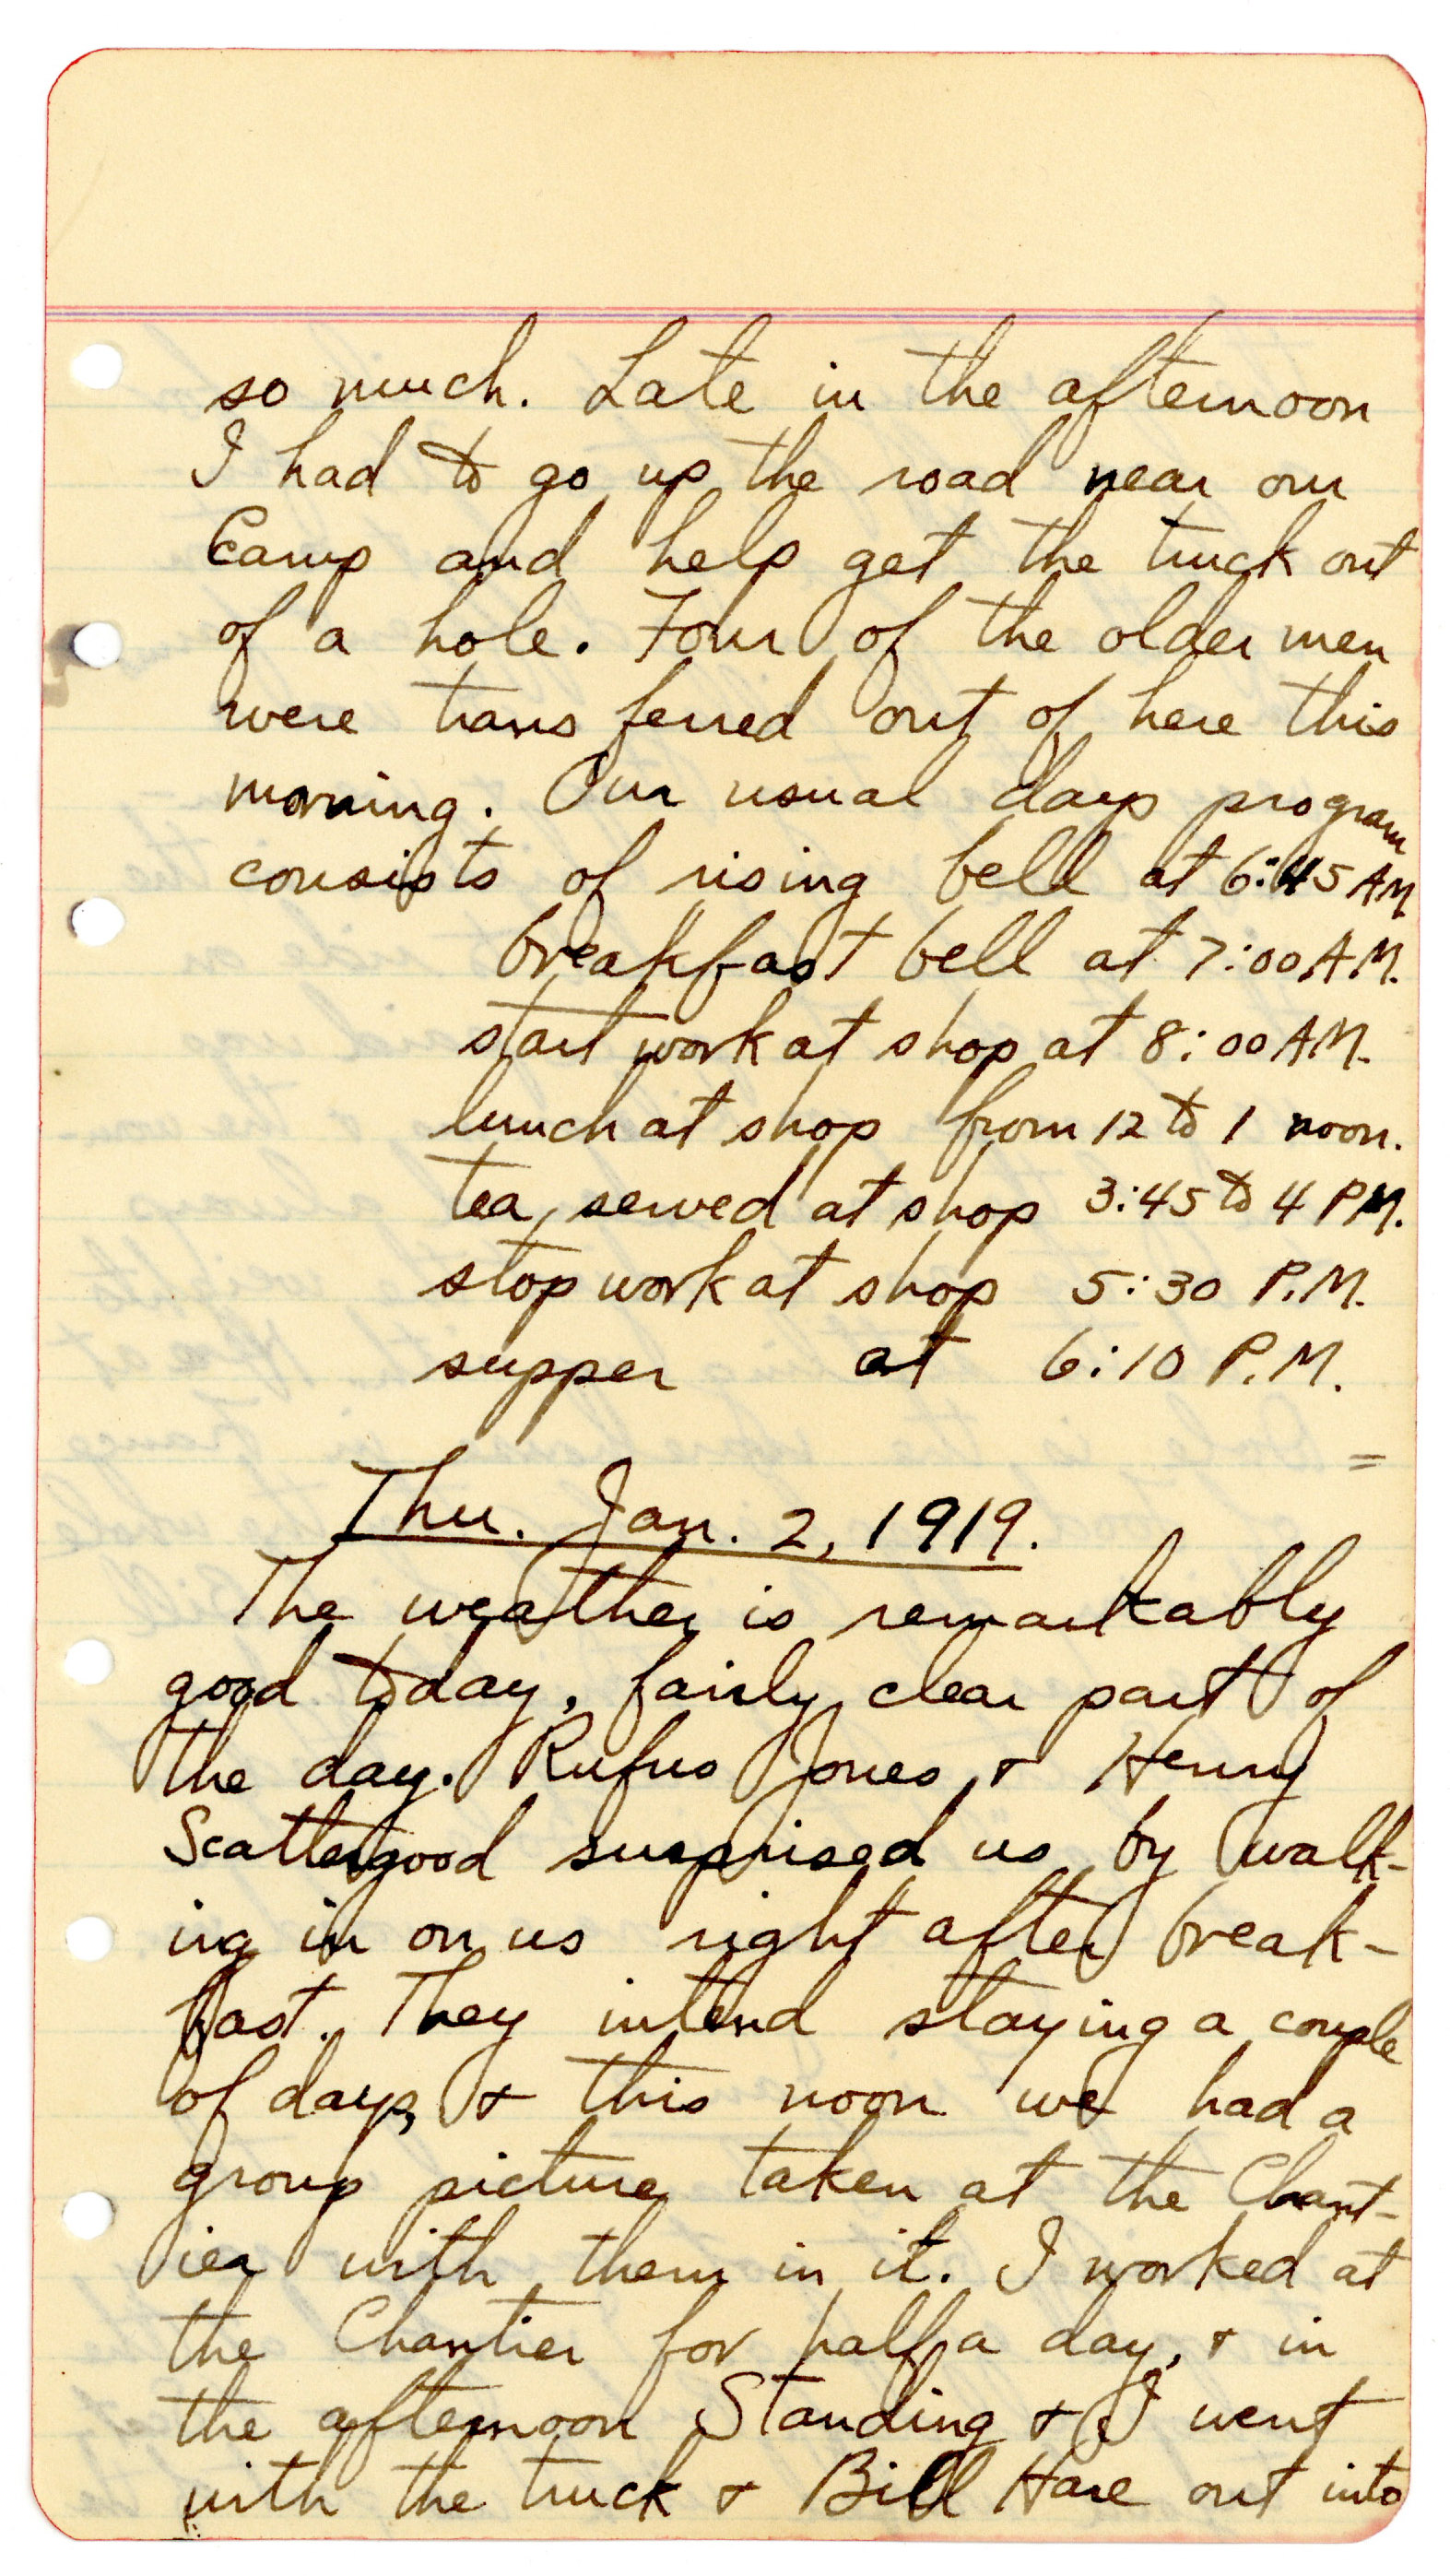 so much. Late in the afternoon
I had to go up the road near our
Camp and help get the truck out
of a hole. Four of the older men
were trans ferred out of here this
morning. Our usual days program
consists of rising bell at 6:45 AM
breakfast bell at 7:00 A.M.
start work at shop at 8:00 AM.
lunch at shop from 12 to 1 noon.
tea, served at shop 3:45 to 4 PM.
stop work at shop 5:30 P.M.
supper at 6:10 P.M.
=
Thu. Jan. 2, 1919.
The weather is remarkably
good today, fairly clear part of
the day. Rufus Jones, & Henry
Scattergood surprised us by walk-
ing in on us right after break-
fast. They intend staying a couple
of days, & this noon we had a
group picture taken at the Chant-
ier with them in it. I worked at
the Chantier for half a day, & in
the afternoon Standing & I went
with the truck & Bill Hare out into